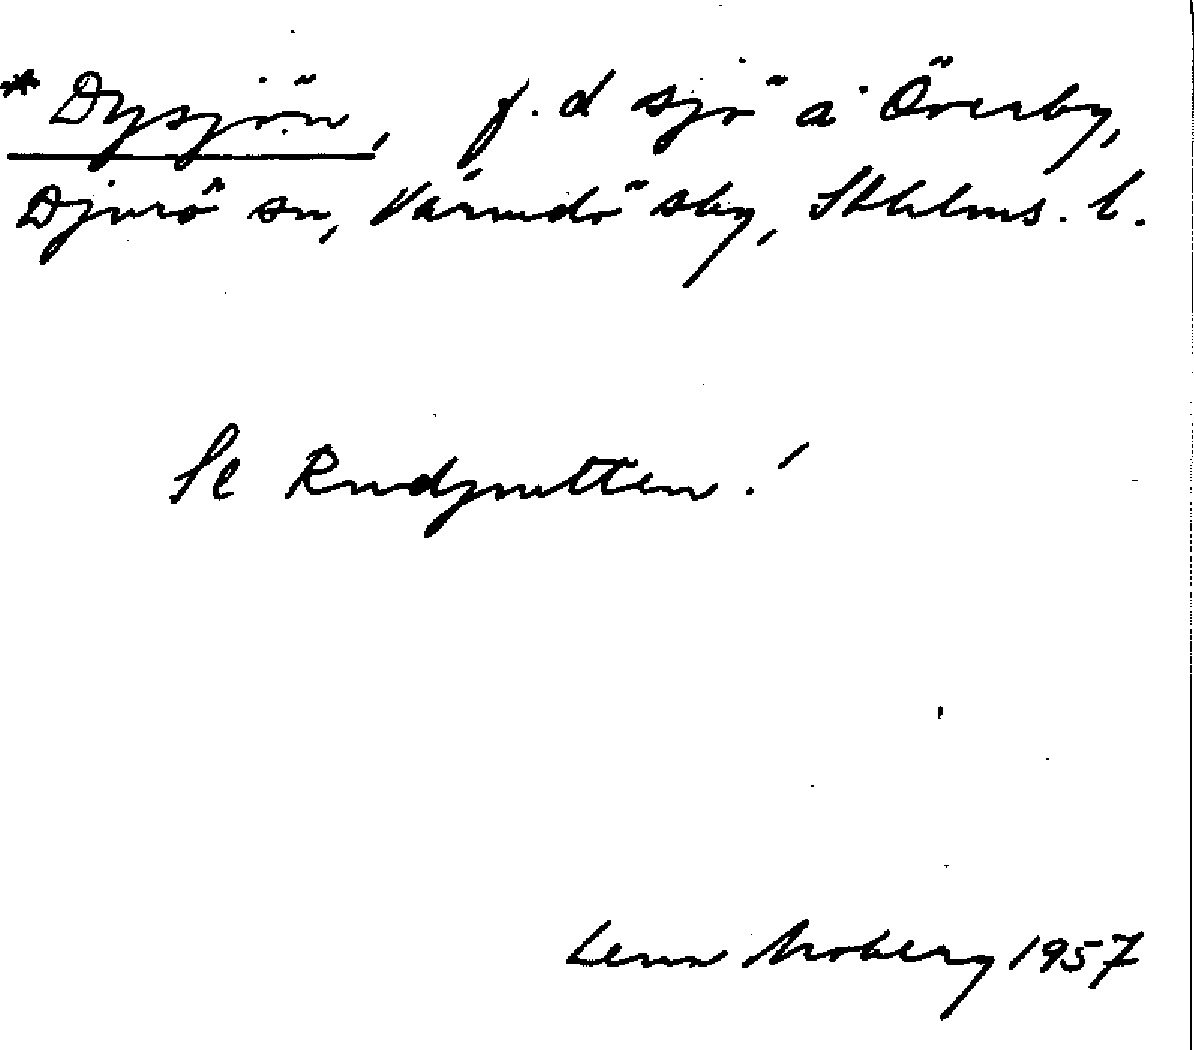 *Dysjön, f. d sjö å Överby,
Djurö sn, Värmdö sky, Sthlms. l.
Se Rudputten!
Lenn Moberg 1957